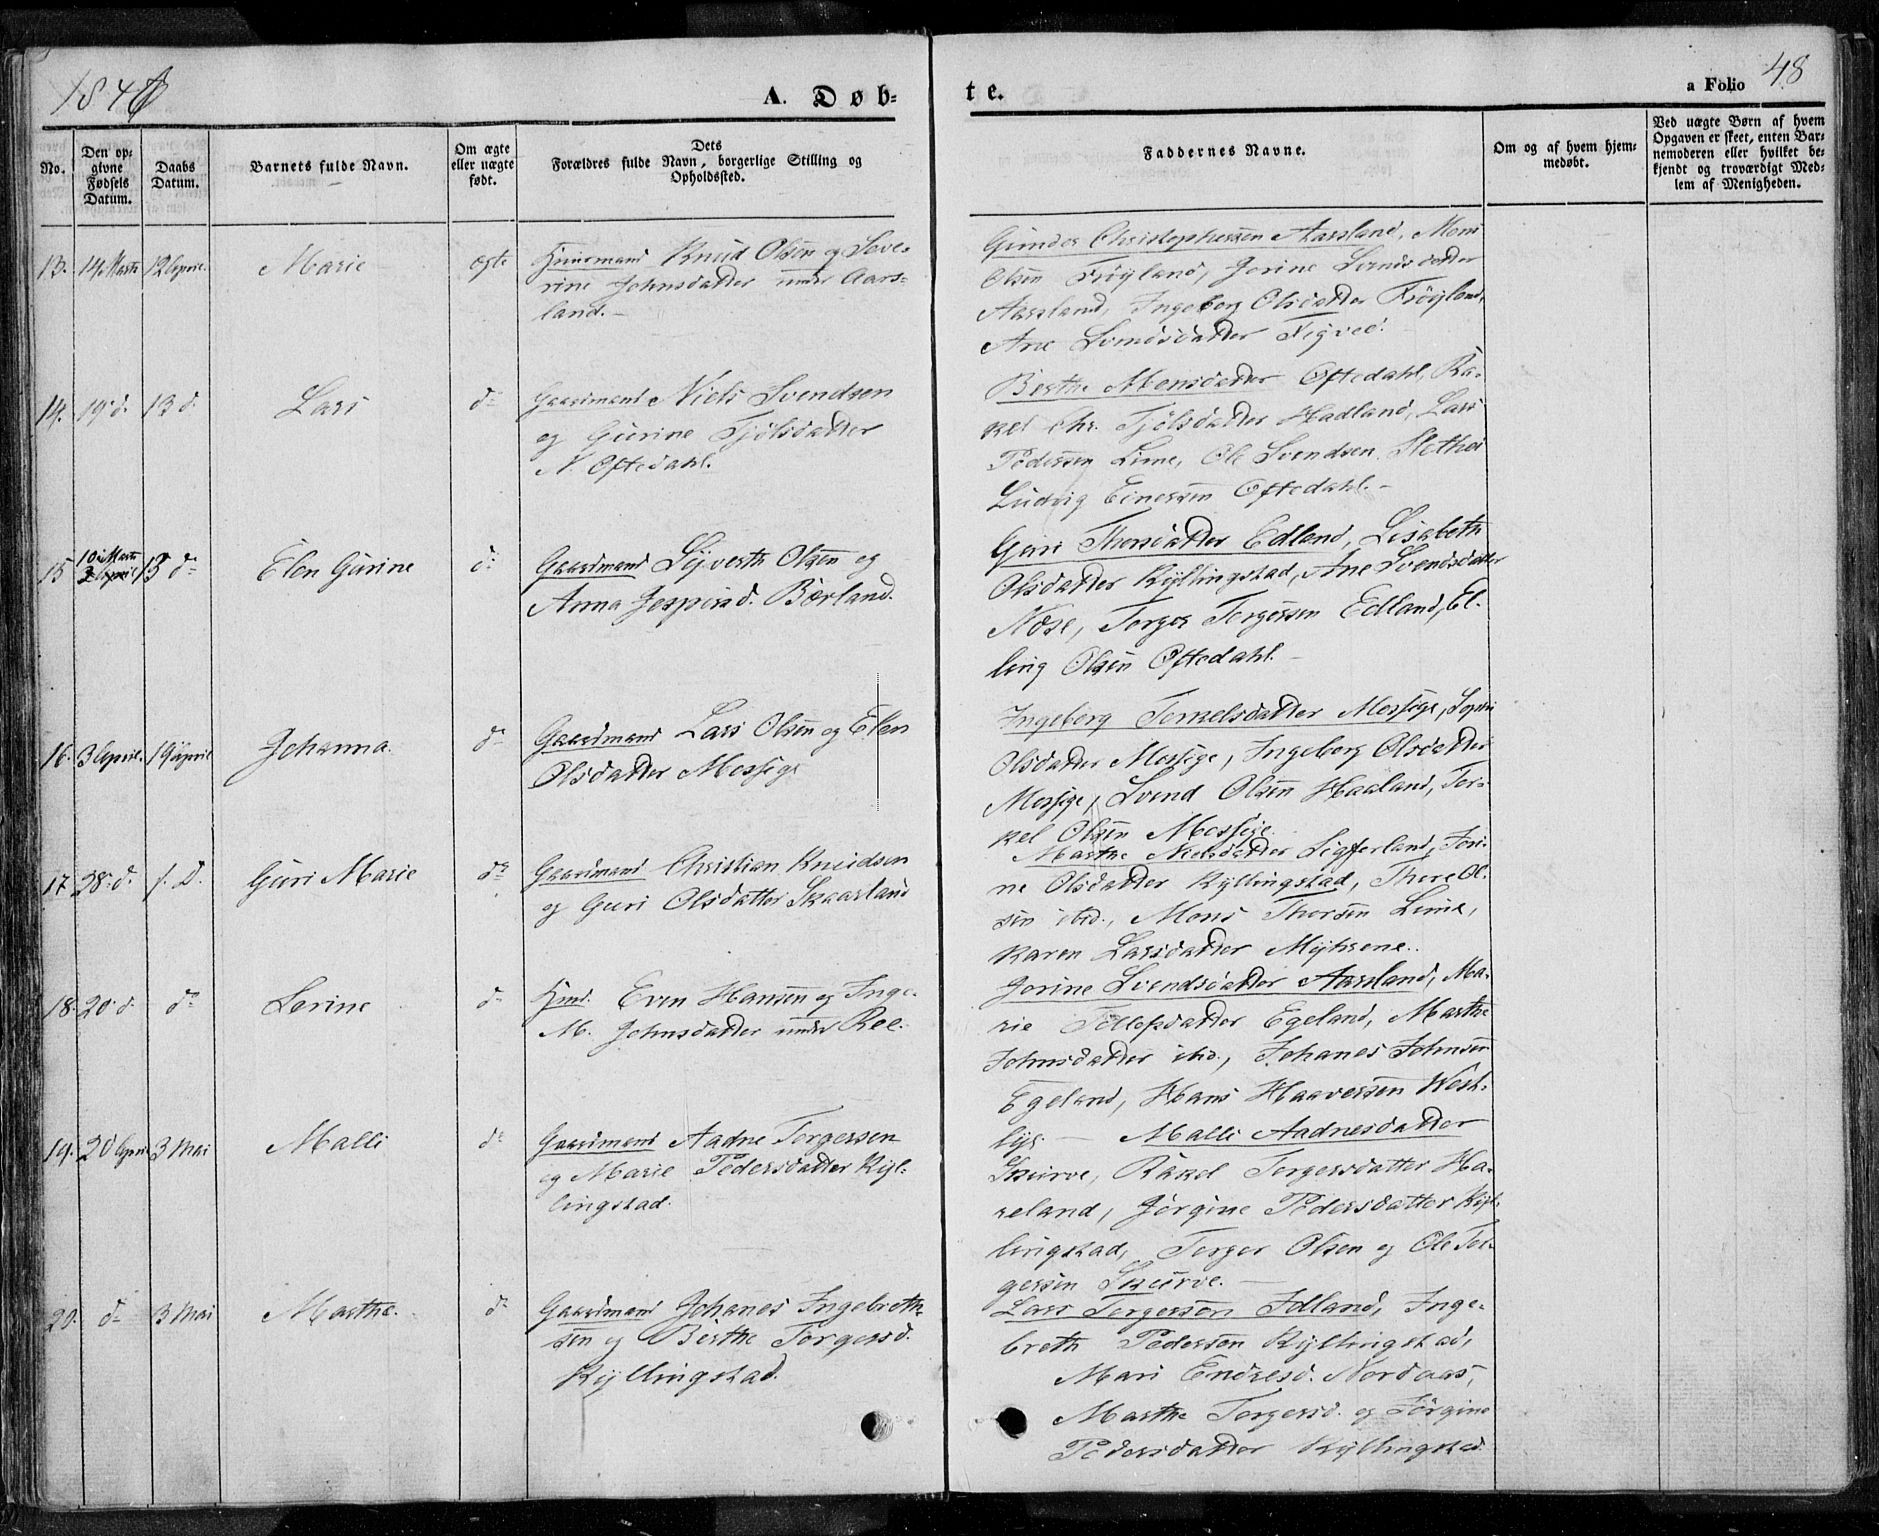 1846
A. Døb-
te.
a Folio 48
No.
Den op-
givne
Fødsels
Datum.
Daabs
Datum.
Barnets fulde Navn.
Om ægte
eller uægte
født.
Dets
Forældres fulde Navn, borgerlige Stilling og
Opholdssted.
Faddernes Navne.
Om og af hvem hjem-
medøbt.
Ved uægte Børn af hvem
Opgaven er skeet, enten Bar-
nemoderen eller hvilket be-
kjendt og troværdigt Med-
lem af Menigheden.
13. 14 Marts 12 April. Marie ægte Huusmand Knud Olsen og Seve-
rine Johnsdatter under Aars-
land.-
Gunder Christophersen Aarsland, Mons
Olsen Frøyland, Jorine Svendsdatter
Aarsland, Ingeborg Olsdatter Frøyland,
Ane Svendsdatter Tigved.
14. 19 d. 13 d. Lars do Gaardmand Niels Svendsen
og Gurine Fjølsdatter
N. Oftedahl.
Berthe Monsdatter Oftedahl, Ra-
kel Chr. Tjølsdatter Hadland, Lars
Pedersen Lime, Ole Svendsen
Ludvig Einersen Oftedahl.-
15 10 Marts
2 April 13 do Elen Gurine do Gaardmand Syverth Olsen og
Anna Jespersd. Børland.
Guri Thorsdatter Edland, Lisabeth
Olsdatter Kyllingstad, Ane Svendsdatter
Næse, Torger Torgersen Edland, El-
ling Olsen Oftedahl.-
16. 3 April. 19 April Johanna. do Gaardmand Lars Olsen og Elen
Olsdatter Mossige
Ingeborg Torkelsdatter Mossige, Sophi
Olsdatter Mossige, Ingeborg Olsdatter
Mossige, Svend Olsen Haaland, Tor-
kel Olsen Mossige.
17 28 d. f. D. Guri Marie do Gaardmand Christian Knudsen
og Guri Olsdatter Skaarland
Marthe Nielsdatter Sigferland, Jori-
ne Olsdatter Kyllingstad, Thore Ol-
sen ibid., Mons Thorsen Lime,
Karen Larsdatter Myhrene.
18. 20 d. do Serine do Hmd. Even Hansen og Inge.
M. Johnsdatter under Ree.
Jorine Svendsdatter Aarsland, Ma-
rie Tollefsdatter Egeland, Marthe
Johnsdatter ibid., Johanes Johnsen
Egeland, Hans Haaversen West-
lye.-
19. 20 April 3 Mai Malli do Gaardmand Aadne Torgersen
og Marie Pedersdatter Kyl-
lingstad.
Malli Aadnesdatter
Skurve, Rakel Torgersdatter Ha-
reland, Jørgine Pedersdatter Kyl-
lingstad, Torger Olsen og Ole Tor-
gersen Skurve.-
20. do 3 Mai Marthe. do Gaardmand Johanes Ingebreth-
sen og Berthe Torgersd.
Kyllingstad.
Lars Torgersen Edland, Inge-
breth Pedersen Kyllingstad,
Mari Endresd. Nordaas,
Marthe Torgersd. og Jørgine
Pedersdatter Kyllingstad